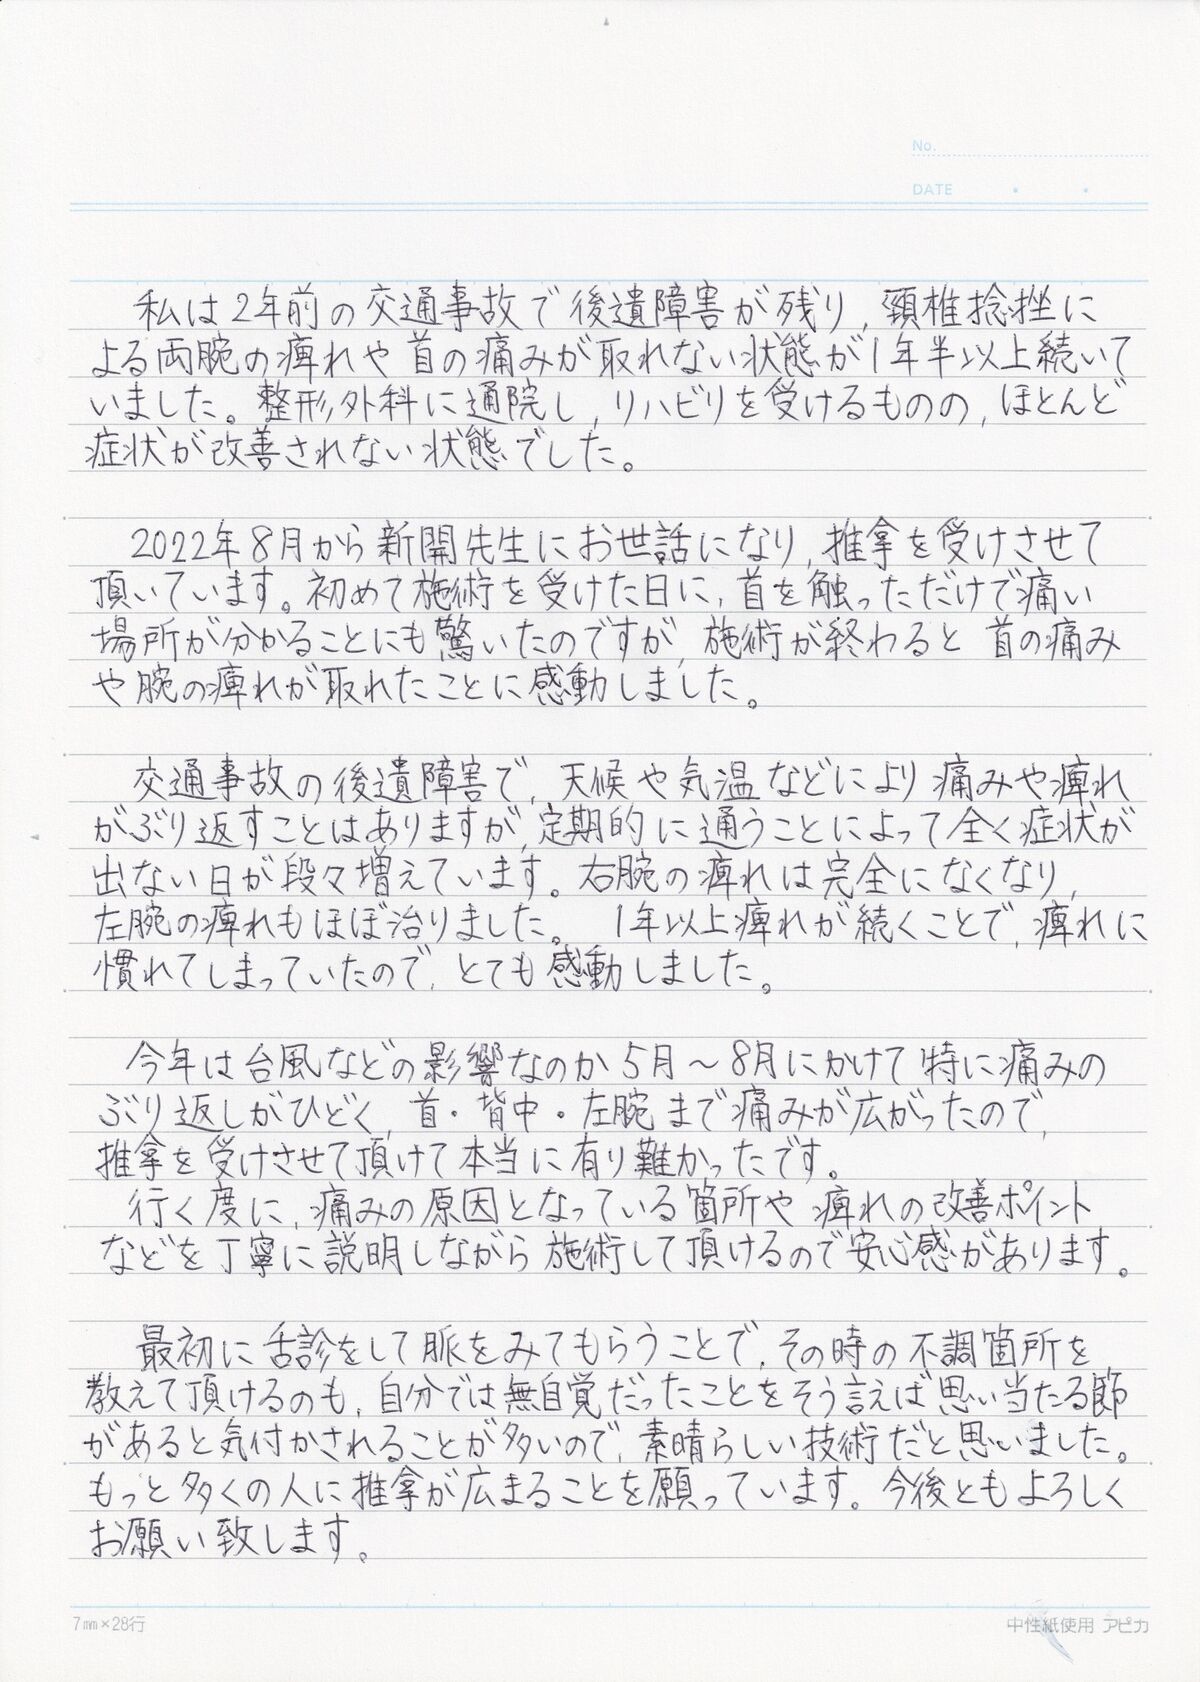 No.
DATE
私は2年前の交通事故で後遺障害が残り,頸椎捻挫に
よる両腕の痺れや首の痛みが取れない状態が1年半以上続いて
いました。整形外科に通院し,リハビリを受けるものの,ほとんど
症状が改善されない状態でした。
2022年8月から新開先生にお世話になり,推拿を受けさせて
頂いています。初めて施術を受けた日に,首を触っただけで痛い
場所が分かることにも驚いたのですが,施術が終わると首の痛み
や腕の痺れが取れたことに感動しました。
交通事故の後遺障害で,天候や気温などにより痛みや痺れ
がぶり返すことはありますが,定期的に通うことによって全く症状が
出ない日が段々増えています。右腕の痺れは完全になくなり,
左腕の痺れもほぼ治りました。1年以上痺れが続くことで,痺れに
慣れてしまっていたので,とても感動しました。
今年は台風などの影響なのか5月〜8月にかけて特に痛みの
ぶり返しがひどく,首・背中・左腕まで痛みが広がったので,
推拿を受けさせて頂けて本当に有り難かったです。
行く度に,痛みの原因となっている箇所や痺れの改善ポイント
などを丁寧に説明しながら施術して頂けるので安心感があります。
最初に舌診をして脈をみてもらうことで,その時の不調箇所を
教えて頂けるのも,自分では無自覚だったことをそう言えば思い当たる節
があると気付かされることが多いので,素晴らしい技術だと思いました。
もっと多くの人に推拿が広まることを願っています。今後ともよろしく
お願い致します。
7mm×28行
中性紙使用 アピカ